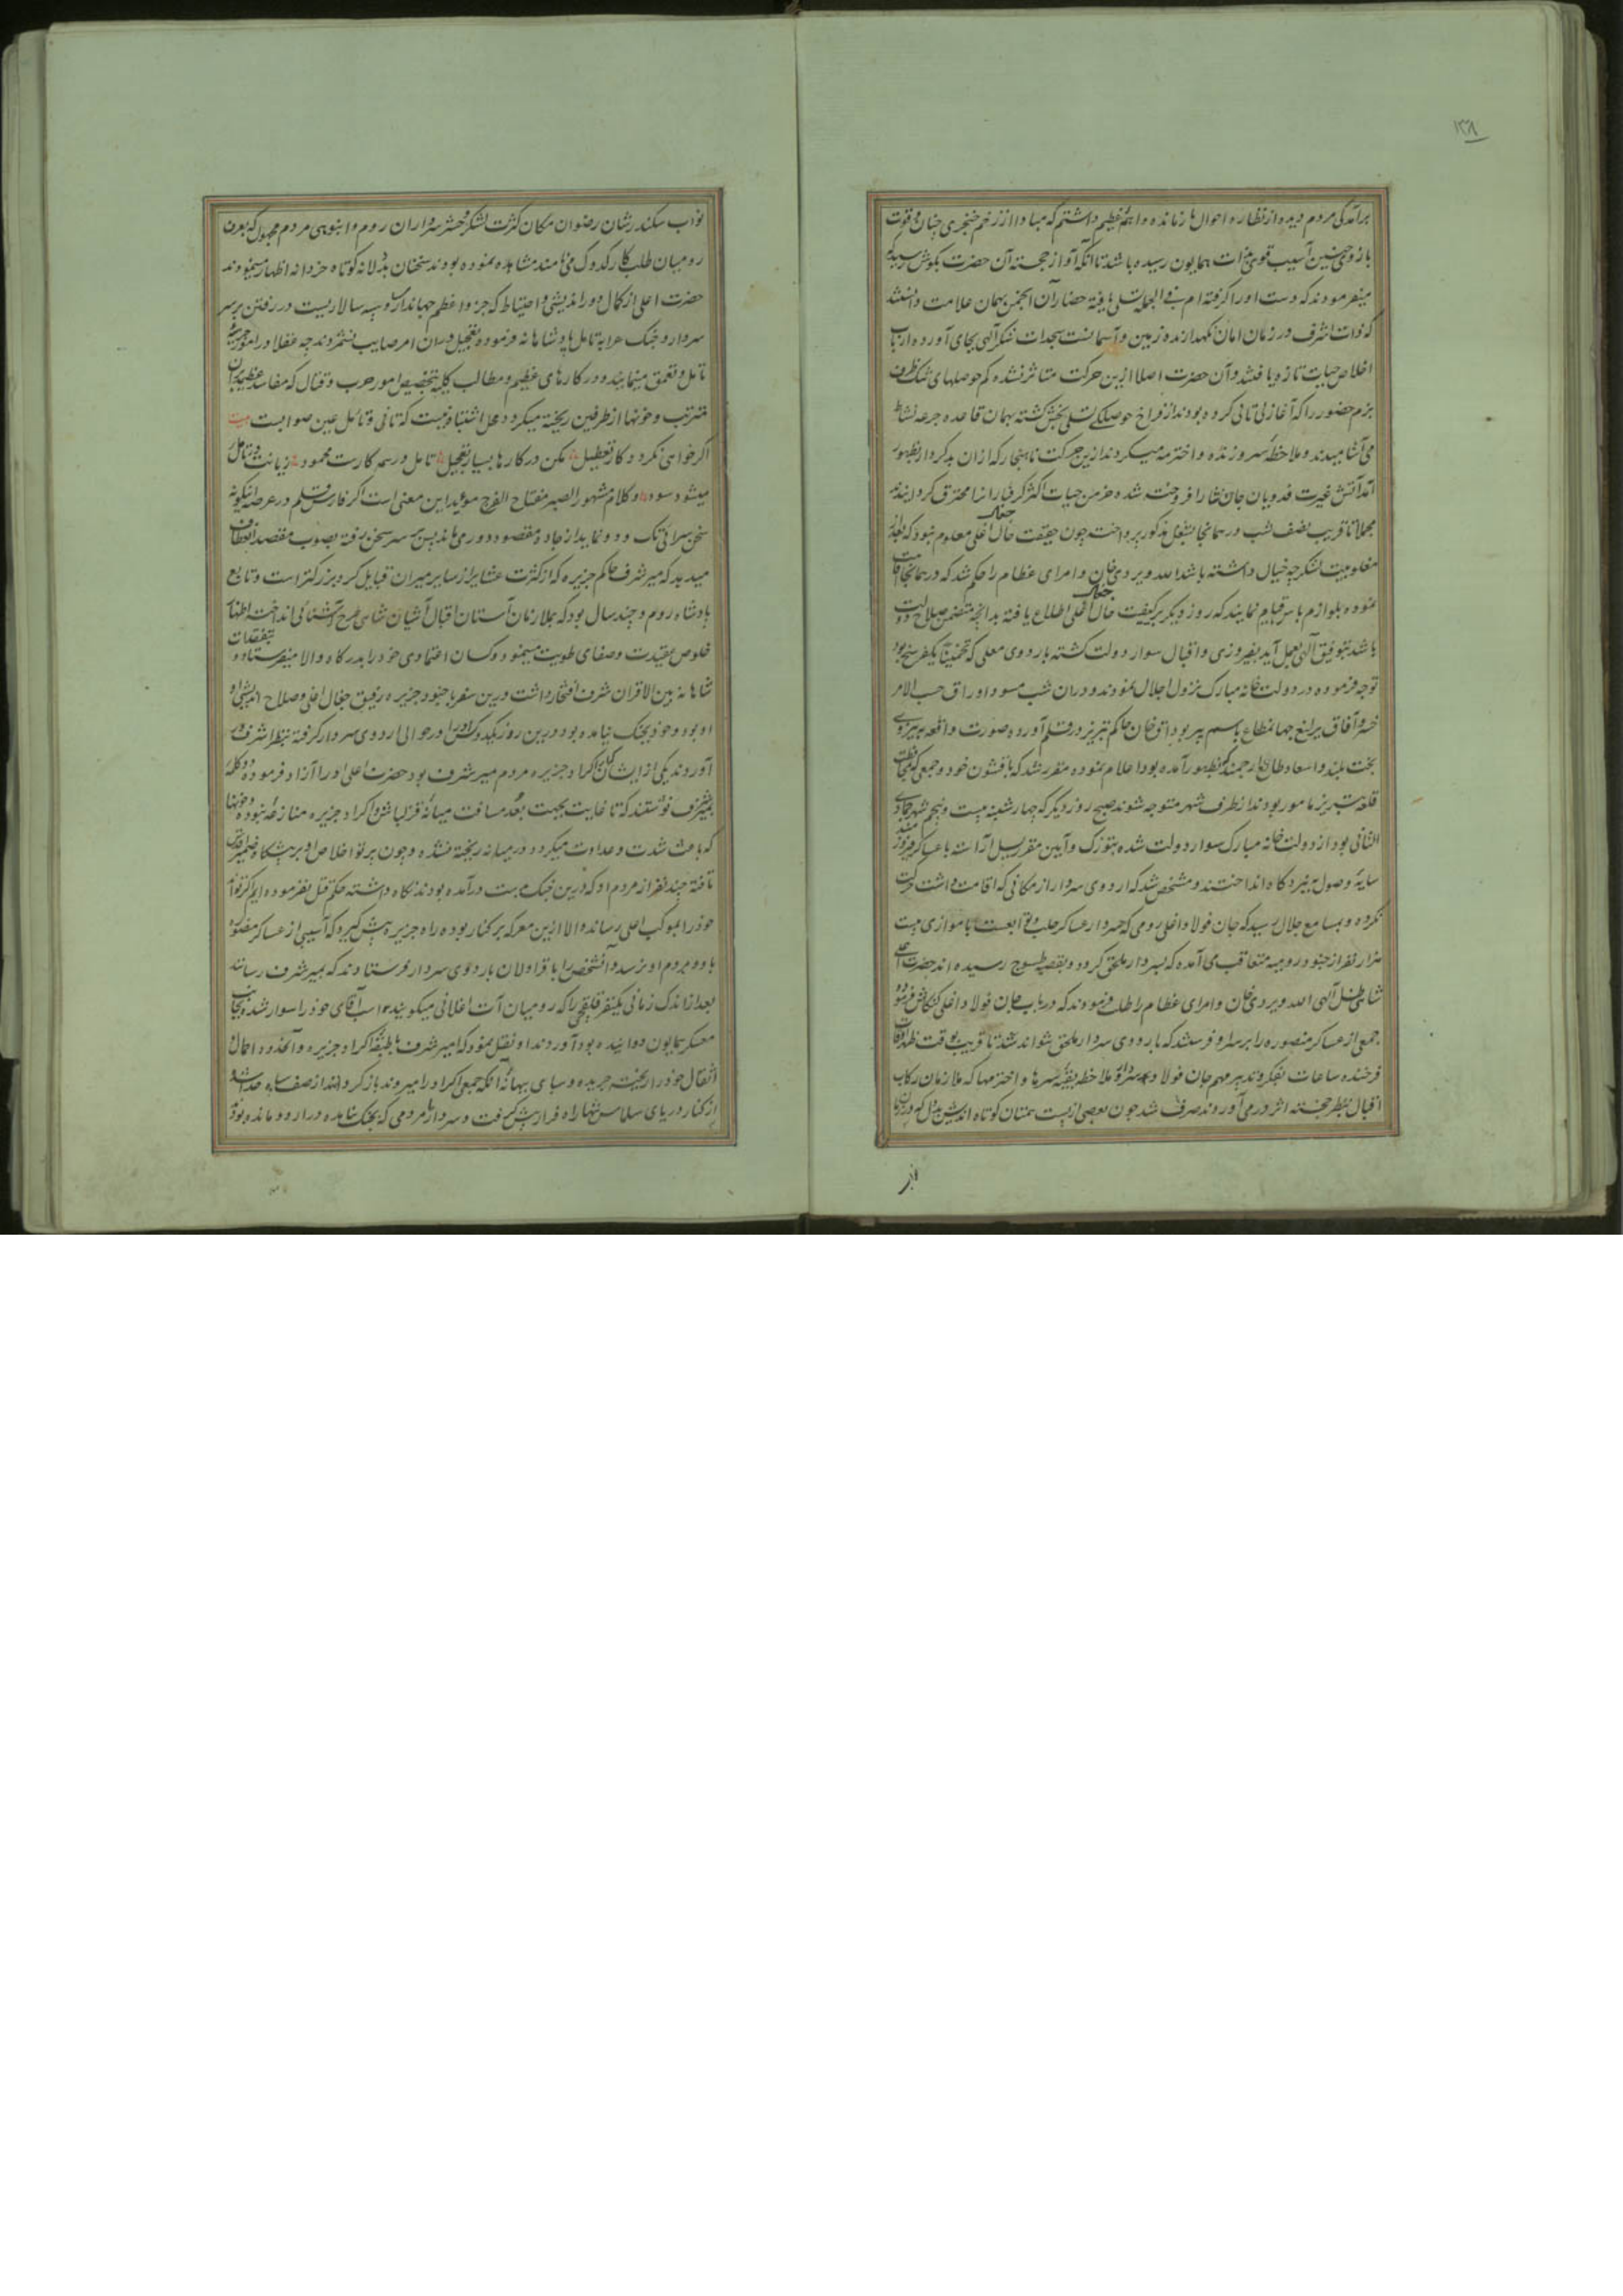 ۱۳۸
برآمدگی مردم دیده از نظاره احوال باز مانده واهمهٔ عظیم داشتم که مبادا از زخم خنجری چنان و قوت
بازوی چنین آسیب قوی بذات همایون رسیده باشد تا آنکه آواز خجسته آن حضرت بگوش رسید که
میفرمودند که دست او را گرفته‌ام فی الجمله تسلی یافته حضار آن انجمن بهمان علامت دانستند
که ذات اشرف در زمان امان نگهدارنده زمین و آسمانست سجدات شکر الهی بجای آورده ارباب
اخلاص حیات تازه یافتند و آن حضرت اصلا ازین حرکت متاثر نشده کم حوصلهای تنک ظرف
بزم حضور را که آغاز بی تابی کرده بودند از فراخ حوصلگی تسلی بخش گشته بهمان قاعده جرعه نشاط
می آشامیدند و ملاحظه سر و زنده و اخترمه میکردند ازین حرکت ناهنجار که ازان بدکردار بظهور
آمد آتش غیرت فدویان جان نثار افروخته شده خرمن حیات اکثر گرفتارانرا محترق گردانیدند
مجملا تا قریب نصف شب در همانجا بشغل مذکور پرداخت چون حقیقت حال جغال اغلی معلوم نبود که بعد از
مغلوبیت لشکر چه خیال داشته باشد الله ویردی خان و امرای عظام را حکم شد که در همانجا اقامت
نموده بلوازم پاس قیام نمایند که روز دیگر بر کیفیت حال جغال اغلی اطلاع یافته بدانچه متضمن صلاح دولت
باشد بتوفیق الهی بعمل آید بفیروزی و اقبال سوار دولت گشته باردوی معلی که تخمینا یکفرسخ بود
توجه فرموده در دولت خانه مبارک نزول اجلال نمودند و در ان شب مسود اوراق حسب الامر
خسرو آفاق یرلیغ جهانمطاع باسم پیر بوداق خان حاکم تبریز در قلم آورده صورت واقعه بهیروی
بخت بلند و اسعاد طالع ارجمند که بظهور آمده بود اعلام نموده مقرر شد که با قشون خود و جمعی که بمحافظت
قلعه تبریز مامور بودند از طرف شهر متوجه شوند صبح روز دیگر که چهارشنبه بیست و پنجم شهر جمادی
الثانی بود از دولت خانه مبارک سوار دولت شده بتوزک و آیین مقرر یسل آراسته با عساکر فیروز
سایهٔ وصول بنبردگاه انداختند و مشخص شد که اردوی سردار از مکانی که اقامت داشت حرکت
نکرده و بمسامع جلال رسید که جان فولاد اغلی رومی که سردار عساکر حلب و توابعست با موازی بیست
هزار نفر از جنود رومیه متعاقب می آمده که بسردار ملحق گردد و بقصبه طسوج رسیده اند حضرت اعلی
شاهی ظل الهی الله ویردی خان و امرای عظام را طلب فرمودند که در باب جان فولاد اغلی کنکاش فرموده
جمعی از عساکر منصوره را بر سر او فرستند که باردوی سردار ملحق نتواند شد تا قریب بوقت ظهر اوقات
فرخنده ساعات بفکر و تدبیر مهم جان فولاد و سردار و ملاحظه بقیه سرها و اخترمها که ملازمان رکاب
اقبال بنظر خجسته اثر در می آوردند صرف شد چون بعضی از پست همتان کوتاه اندیش بددل که در زمان
از
نواب سکندر شان رضوان مکان کثرت لشکر و حشر سرداران روم و انبوهی مردم مجهول که بعرف
رومیان طلب کار کدوک می نامند مشاهده نموده بودند سخنان بددلانه کوتاه خردانه اظهار مینمودند
حضرت اعلی از کمال دور اندیشی و احتیاط که جزو اعظم جهانداری و سپه سالاریست در رفتن بر سر
سردار و جنک تامل پادشاهانه فرموده تعجیل دران امر صایب نشمردند چه عقلا در امور جزویه
تامل و تعمق مینمایند و در کارهای عظیم و مطالب کلیه بتخصیص امور حرب و قتال که مفاسد عظیمه بران
مترتب و خونها از طرفین ریخته میگردد محل اشتباه نیست که تانی و تامل عین صوابست بیت
اگر خواهی نگردد کار تعطیل مکن در کارها بسیار تعجیل تامل در همه کارت محمود زیانت بی تامل
میشود سود و کلام مشهور الصبر مفتاح الفرج موید این معنی است اگر فارس قلم در عرصه اینگونه
سخن سرائی تک و دو نماید از جاده مقصود دور می ماند پس بر سر سخن رفته بصوب مقصد انعطاف
میدهد که میر شرف حاکم جزیره که از کثرت عشایر از سایر میران قبایل کرد بزرگتر است و تابع
پادشاه روم و چند سال بود که بملازمان آستان اقبال آشیان شاهی طرح آشنائی انداخته اظهار
خلوص عقیدت و صفای طویت مینمود و کسان اعتمادی خود را بدرگاه والا میفرستاد و بتفقدات
شاهانه بین الاقران شرف افتخار داشت درین سفر با جنود جزیره رفیق جغال اغلی و صلاح اندیش او
او بود و خود بجنک نیامده بود درین روز یکدو کس را در حوالی اردوی سردار گرفته بنظر اشرف در
آوردند یکی از ایشان که از اکراد جزیره مردم میر شرف بود حضرت اعلی او را آزاد فرموده دو کلمه
بمیر شرف نوشتند که تا غایت بجهت بعد مسافت میانهٔ قزلباش و اکراد جزیره منازعه نبوده و خونها
که باعث شدت و عداوت میگردد در میانه ریخته نشده و چون پرتو اخلاص او بر پیشگاه ضمیر
تافته چند نفر از مردم او که درین جنک بدست درآمده بودند نگاه داشته حکم قتل نفرموده ایم اگر تواند
خود را بموکب اعلی رساند و الا ازین معرکه بر کنار بوده راه جزیره پیش گیرد که آسیبی از عساکر منصوره
باو و مردم او نرسد و آنشخص را با قراولان باردوی سردار فرستادند که بمیر شرف رسانند
بعد از اندک زمانی یکنفر قلیقچی را که رومیان آت اغلانی میگویند اسب آقای خود را سوار شده بجانب
معسکر همایون دوانیده بود آوردند او نقل نمود که امیر شرف با طبقهٔ اکراد جزیره و آنحدود احمال و
اثقال خود را ریخته جریده و سبای ببهانهٔ آنکه جمعی اکراد را میروند باز گردانند از صف سپاه جدا شده
از کنار دریای سلماس تنها راه فرار پیش گرفت و سردار با مردمی که بجنک نیامده در اردو مانده بودند